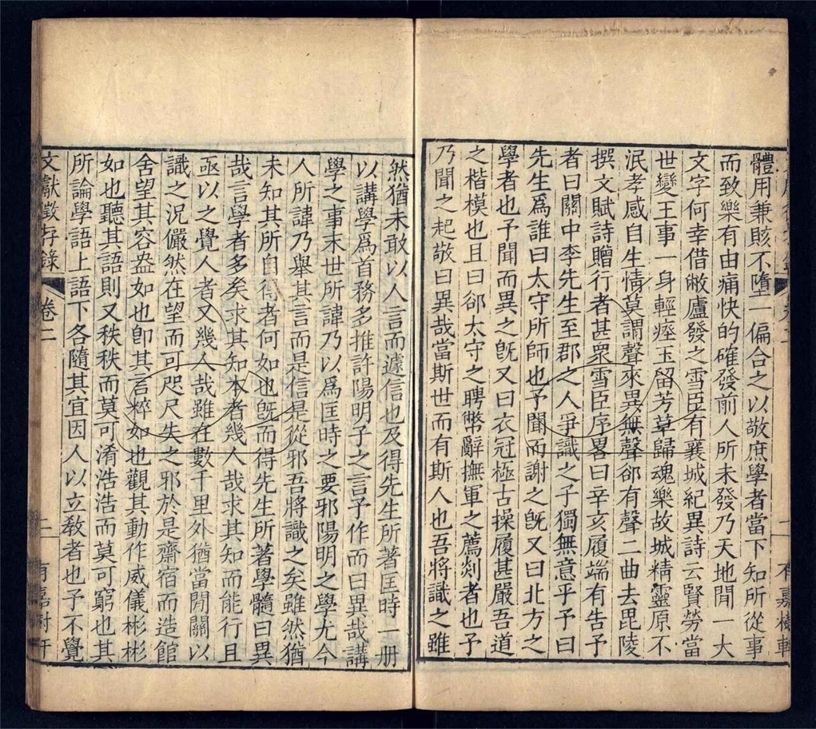 體用兼賅不墮一偏合之以敬庶學者當下知所從事
而致樂有由痛快的確發前人所未發乃天地間一大
文字何幸借敝廬發之雪臣有襄城紀異詩云賢勞當
世變王事一身輕瘞玉留芳草歸魂樂故城精靈原不
泯孝感自生情莫謂聲來異無聲卻有聲二曲去毘陵
撰文賦詩贈行者甚眾雪臣序畧曰辛亥履端有告予
者曰關中李先生至郡之人爭識之子獨無意乎予曰
先生爲誰曰太守所師也予聞而謝之旣又曰北方之
學者也予聞而異之旣又曰衣冠極古操履甚嚴吾道
之楷模也且曰郤太守之聘幣辭撫軍之薦剡者也予
乃聞之起敬曰異哉當斯世而有斯人也吾將識之雖
然猶未敢以人言而遽信也及得先生所著匡時一册
以講學爲首務多推許陽明子之言予作而曰異哉講
學之事末世所諱乃以爲匡時之要邪陽明之學尤今
人所諱乃舉其言而是信是從邪吾將識之矣雖然猶
未知其所自得者何如也旣而得先生所著學髓曰異
哉言學者多矣求其知本者幾人哉求其知而能行且
亟以之覺人者又幾人哉雖在數千里外猶當閉關以
識之況儼然在望而可咫尺失之邪於是齋宿而造館
舍望其容盎如也卽其言粹如也觀其動作威儀彬彬
如也聽其語則又秩秩而莫可淆浩浩而莫可窮也其
所論學語上語下各隨其宜因人以立敎者也予不覺
文獻徵存錄 卷二 二 有嘉樹軒